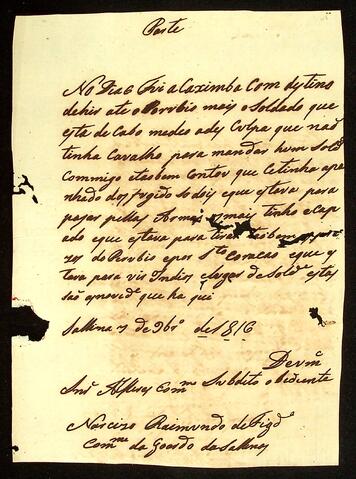 Parte
No Dia 6 Fui a Caximba Com dystino
de hir ate o Porvbio mais o Soldado que
esta de Cabo me deo a dy Culpa que naõ
tinha Cavalho para mandar hum Sold.
Commigo e tãobem Contou que Se tinha apa
nhado dos fugido so dois e que estava para
pasar pellas Armas mais tinho e Cap
ado e que estava para
do Porvbio e por S.to Coracaõ que y
tava para vir Indios e lugar de Sold.os estas
saõ as novid.e que ha qui
Sallina 7 de 9br.o de 1816
De vm.
Snr. Alferes Com.e Subdito obediente
Narcizo Raimundo de Figd.o
Com.e da Goarda da Sallinas